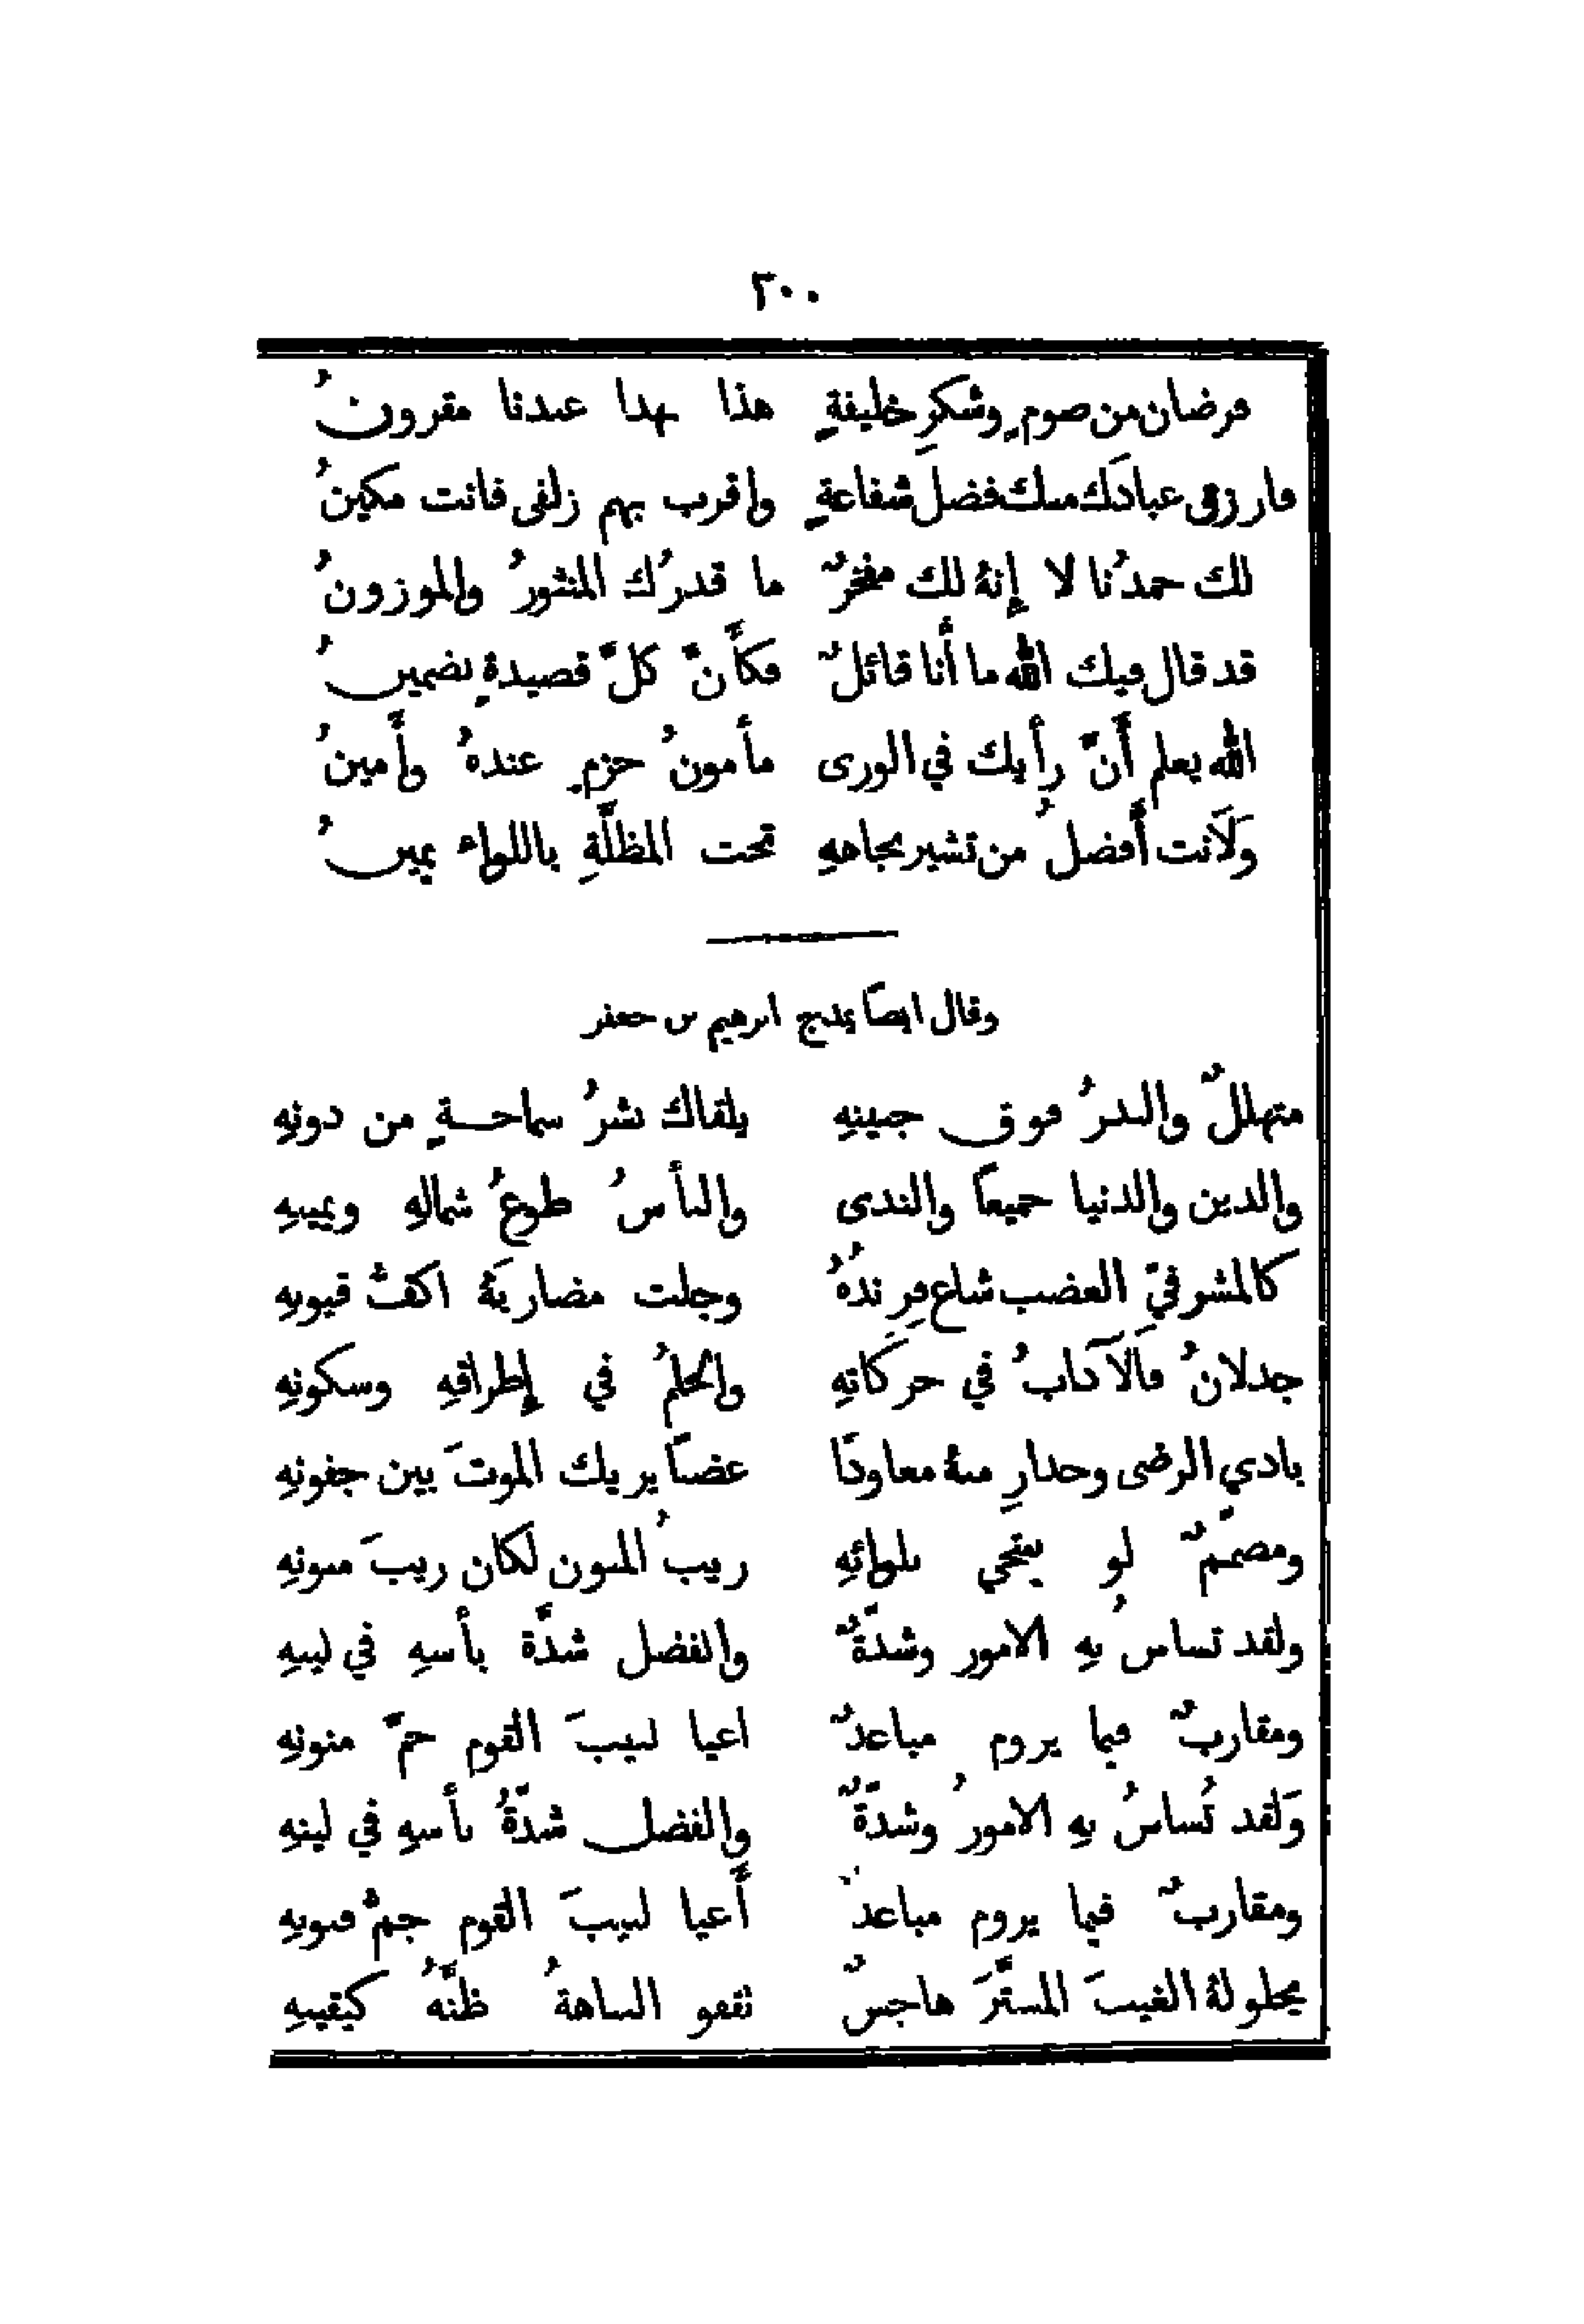 ٢٠٠
فرضان من صومٍ وشكرِ خليفةٍ هذا بهذا عندنا مقرونُ
فارزق عبادَك منك فضل شفاعةٍ واقرب بهم زلفى فانت مكينُ
لك حمدُنا لا إنهُ لك مفخرٌ ما قدرُك المنثورُ والموزونُ
قد قال فيك الله ما أنا قائلٌ فكأَنَّ كلَّ قصيدةٍ تضمينُ
الله يعلم أَنَّ رأيك في الورى مأمونُ حزمٍ عندهُ وأَمينُ
وَلَأنت أَفضلُ من تشير بجاههِ تحت المظلَّةِ باللواء يمينُ
وقال ايضاً يمدح ابرهيم بن جعفر
متهللٌ والبدرُ فوق جبينهِ يلقاك بشرُ سماحةٍ من دونهِ
والدين والدنيا جميعاً والندى والبأسُ طوعُ شمالهِ ويمينهِ
كالمشرفيّ العضب شاع فِرِندُهُ وجلت مضاربَهُ اكفُّ قيونهِ
جذلانُ فَالآدابُ في حركَاتهِ والحلمُ في إطراقهِ وسكونهِ
بادي الرضى وحذارِ منهُ معاودًا عضباً يريك الموتَ بين جفونهِ
ومصممٌ لو ينتحي بلوائهِ ريبُ المنون لكان ريبَ منونهِ
ولقد تساسُ بهِ الامور وشدَّةٌ والفضل شدَّة بأسهِ في لينهِ
ومقاربٌ فيما يروم مباعدٌ اعيا لبيبَ القوم حمّ منونهِ
وَلقد تُساسُ بهِ الامورُ وشدَّةٌ والفضل شدَّةُ بأسهِ في لينهِ
ومقاربٌ فيما يروم مباعدٌ أَعيا لبيبَ القوم جمُّ فنونهِ
يجلو لهُ الغيبَ المستَّرَ هاجسٌ تقفو النباهةُ ظنَّهُ كيقينهِ